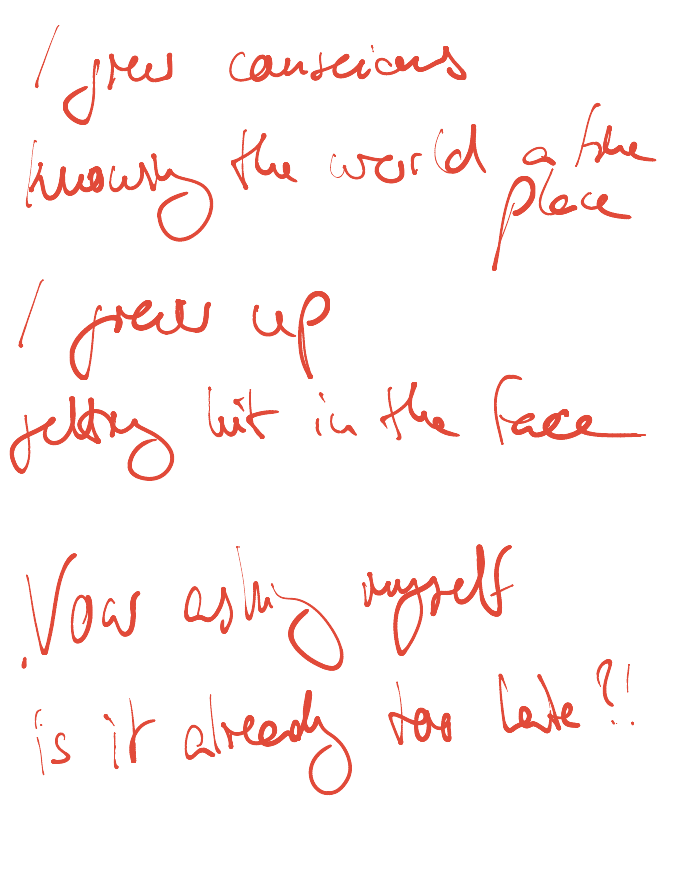 I grew conscious
knowing the world a fine
place
I grew up
getting hit in the face
Now asking myself
is it already too late?!